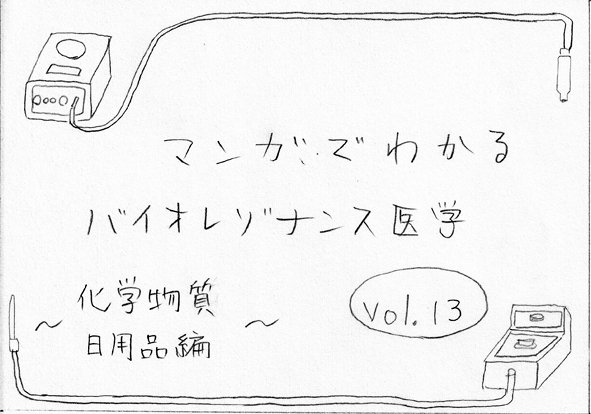 マンガでわかる
バイオレゾナンス医学
～化学物質
日用品編～
vol.13